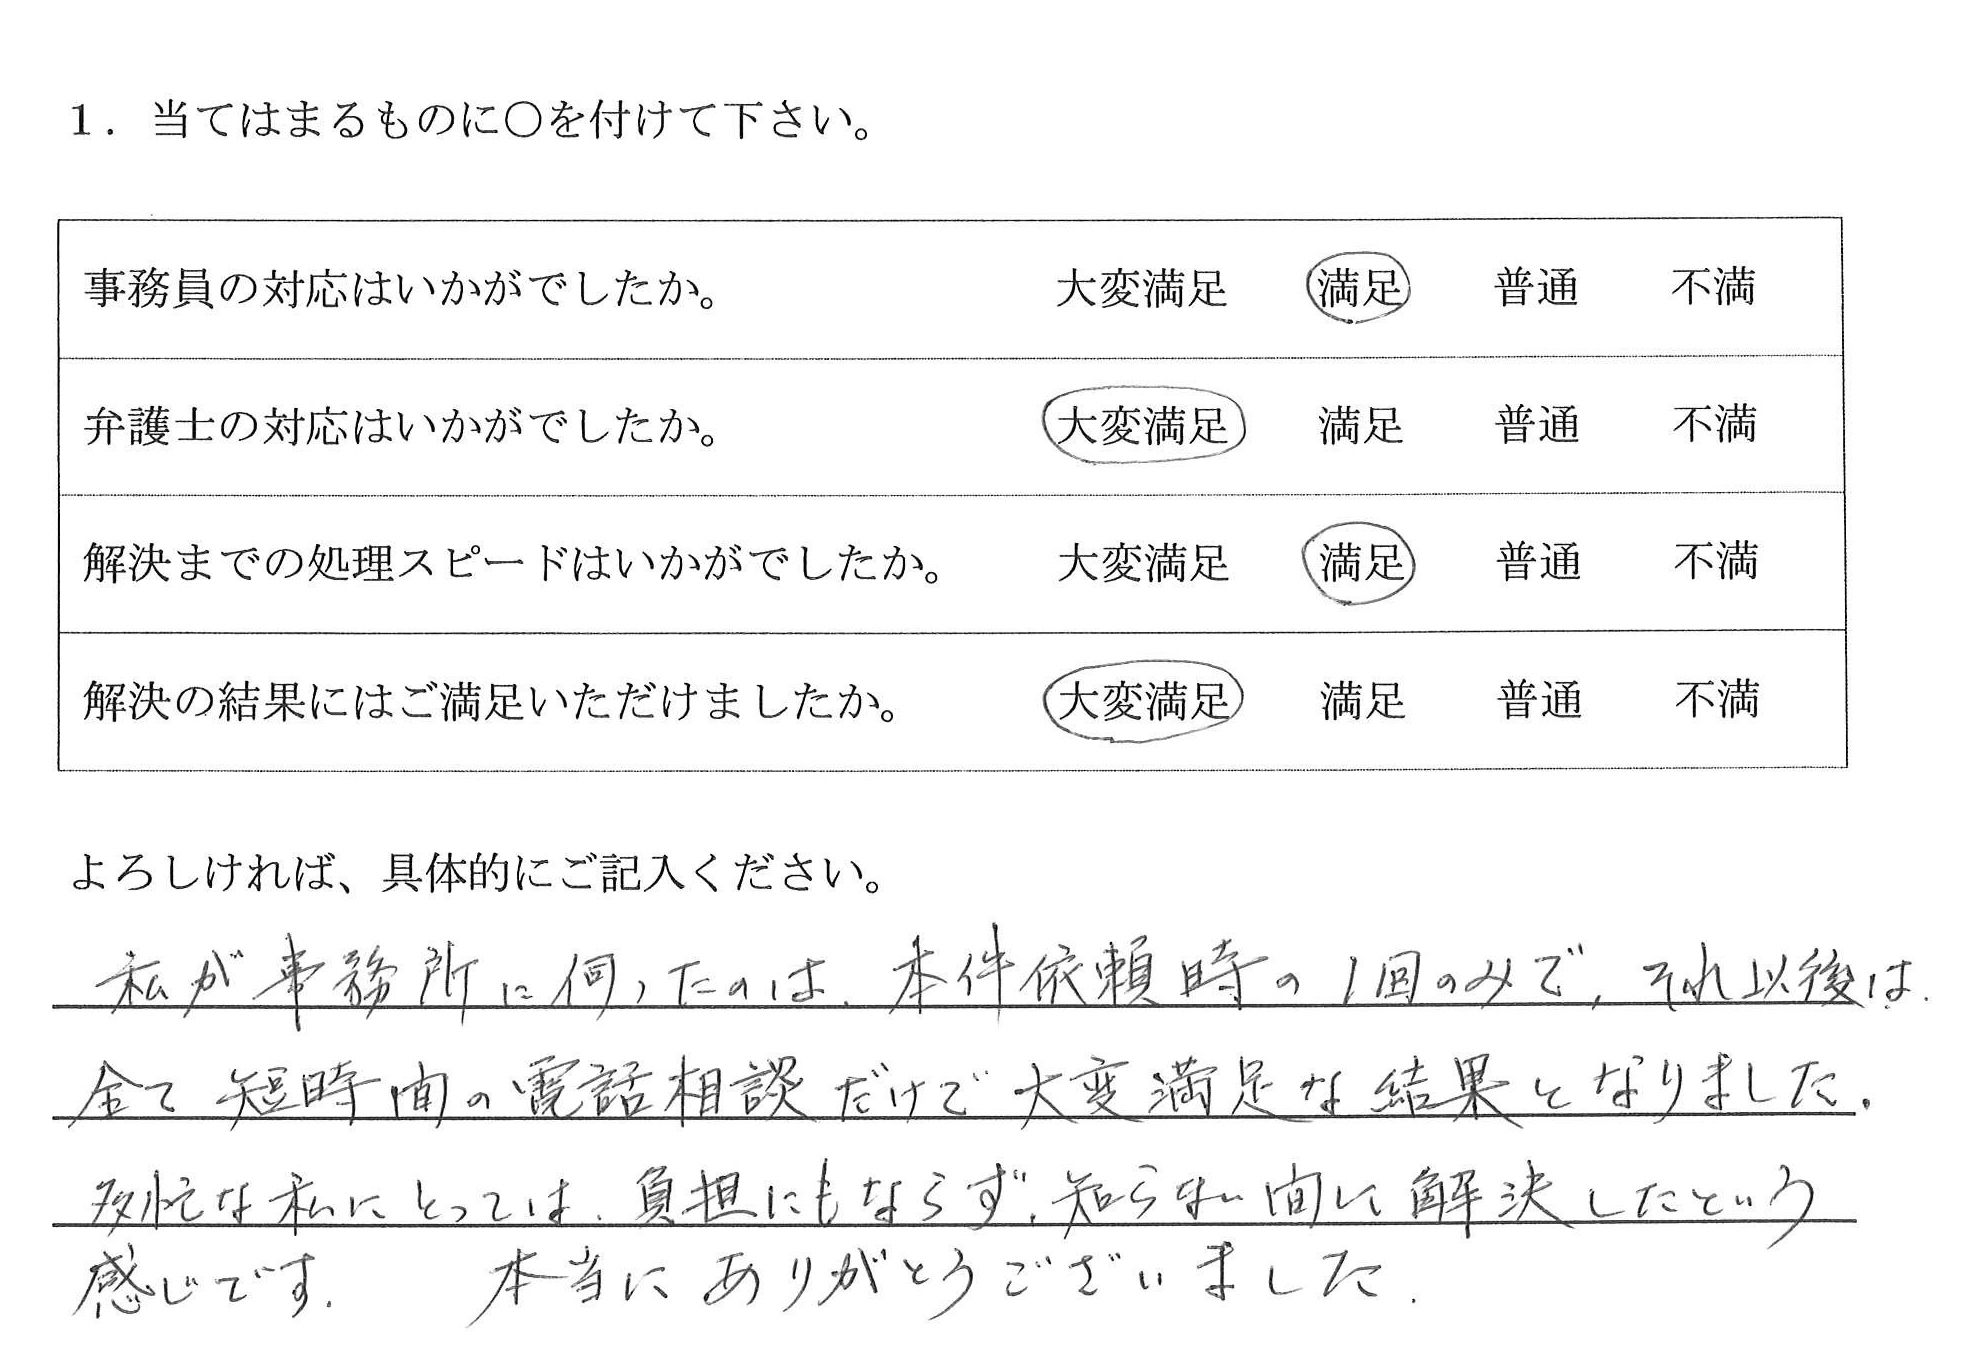 1. 当てはまるものに〇を付けて下さい。
事務員の対応はいかがでしたか。 大変満足 満足 普通 不満
弁護士の対応はいかがでしたか。 大変満足 満足 普通 不満
解決までの処理スピードはいかがでしたか。 大変満足 満足 普通 不満
解決の結果にはご満足いただけましたか。 大変満足 満足 普通 不満
よろしければ、具体的にご記入ください。
私が事務所に伺ったのは、本件依頼時の1回のみで、それ以後は、
全て短時間の電話相談だけで大変満足な結果となりました。
多忙な私にとっては、負担にもならず、知らない間に解決したという
感じです。 本当にありがとうございました。